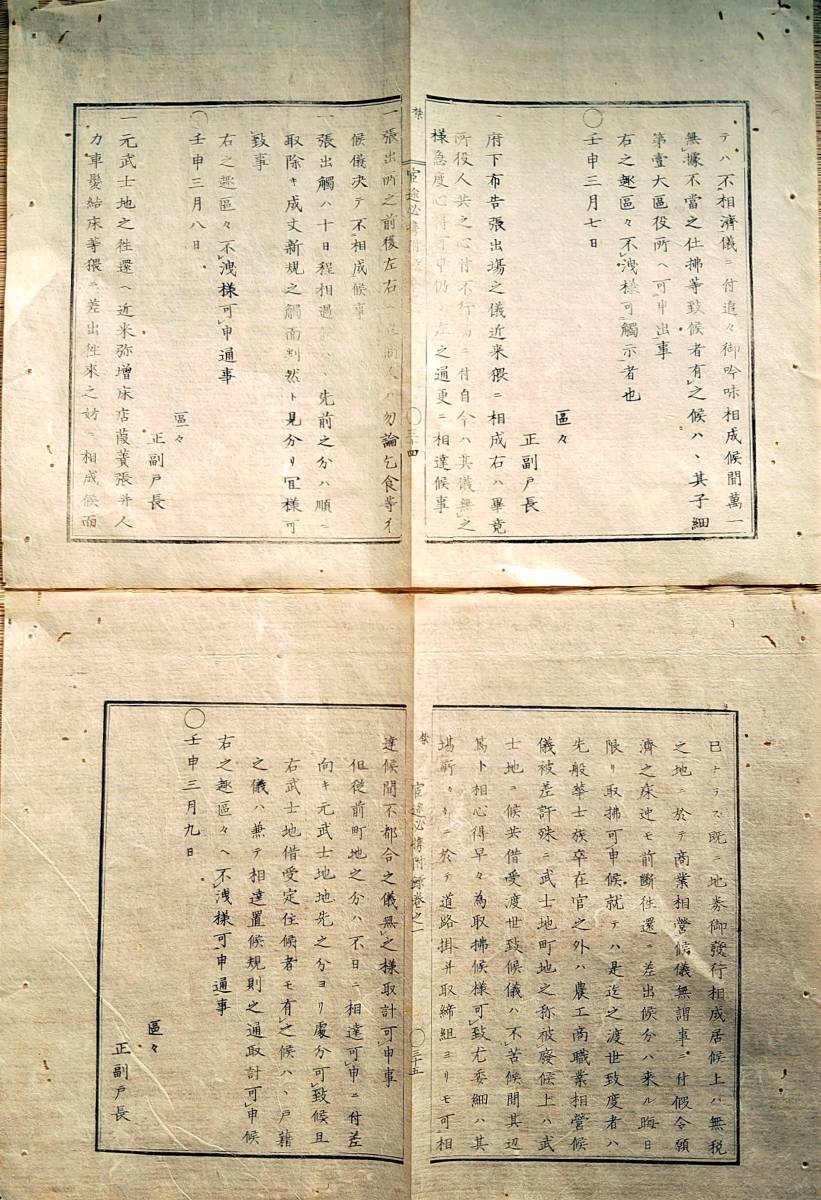 テハ不相濟儀ニ付追々御吟味相成候間萬一
無據不當之仕拂等致候者有之候ハヽ其子細
第壹大區役所ヘ可申出事
右之趣區々不洩樣可觸示者也
〇壬申三月七日
區々
正副戸長
一府下布告張出場之儀近来猥ニ相成右ハ畢竟
所役人共之心付不行
ニ付自今ハ其儀無之
樣急度心得可申仍
左之通更ニ相達候事
官途必携附
〇三十四
一張出所之前後左右
ハ勿論乞食等イ
候儀決テ不相成候事
一張出觸ハ十日程相過
ハヽ先前之分ハ順ニ
取除キ成丈新規之觸面判然ト見分リ宜樣可
致事
右之趣區々不洩樣可申通事
〇壬申三月八日
區々
正副戸長
一元武士地之徃還ヘ近来弥増床店葭簀張并人
力車髪結床等猥ニ差出徃來之妨ニ相成候而
已ナラス既ニ地券御發行相成居候上ハ無税
之地ニ於テ商業相營候儀無謂事ニ付假令願
濟之床迚モ前斷徃還ニ差出候分ハ来ル晦日
限リ取拂可申候就テハ是迄之渡世致度者ハ
先般華士族卒在官之外ハ農工商職業相營候
儀被差許殊ニ武士地町地之称被廢候上ハ武
士地ニ候共借受渡世致候儀ハ不苦候間其辺
篤ト相心得早々為取拂候樣可致尤委細ハ其
場所々々ニ於テ道路掛并取締組ヨリモ可相
官途必携附録巻之一
〇三十五
達候間不都合之儀無之様取計可申事
但従前町地之分ハ不日ニ相達可申ニ付差
向キ元武士地地先之分ヨリ處分可致候且
右武士地借受定住候者モ有之候ハヽ戸籍
之儀ハ兼テ相達置候規則之通取計可申候
右之趣區々ヘ不洩樣可申通事
〇壬申三月九日
區々
正副戸長